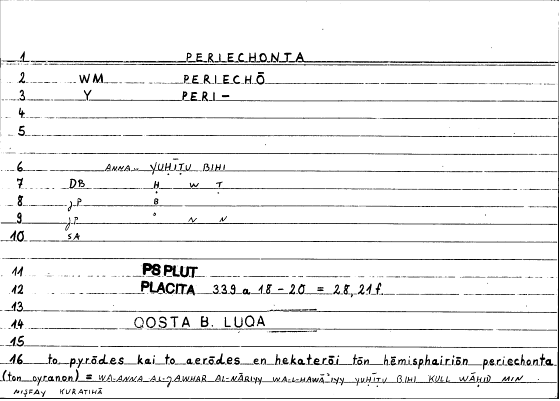 1 PERIECHONTA
2 WM PERIECHŌ
3 Y PERI–
4
5
6 ANNA.. YUḤĪṬU BIHI
7 DB Ḥ W Ṭ
8 JP B
9 JP ° N N
10 SA
11 PS PLUT
12 PLACITA 339 a 18 – 20 = 28, 21 f.
13
14 QOSTA B. LUQA
15
16 to pyrōdes kai to aerōdes en hekaterōi tōn hēmisphairiōn periechonta
(ton oyranon) = WA-ANNA AL-ǦAWHAR AL-NĀRIYY WA-L-HAWĀʾIYY YUḤĪṬU BIHI KULL WĀḤID MIN
NIṢFAY KURATIHĀ